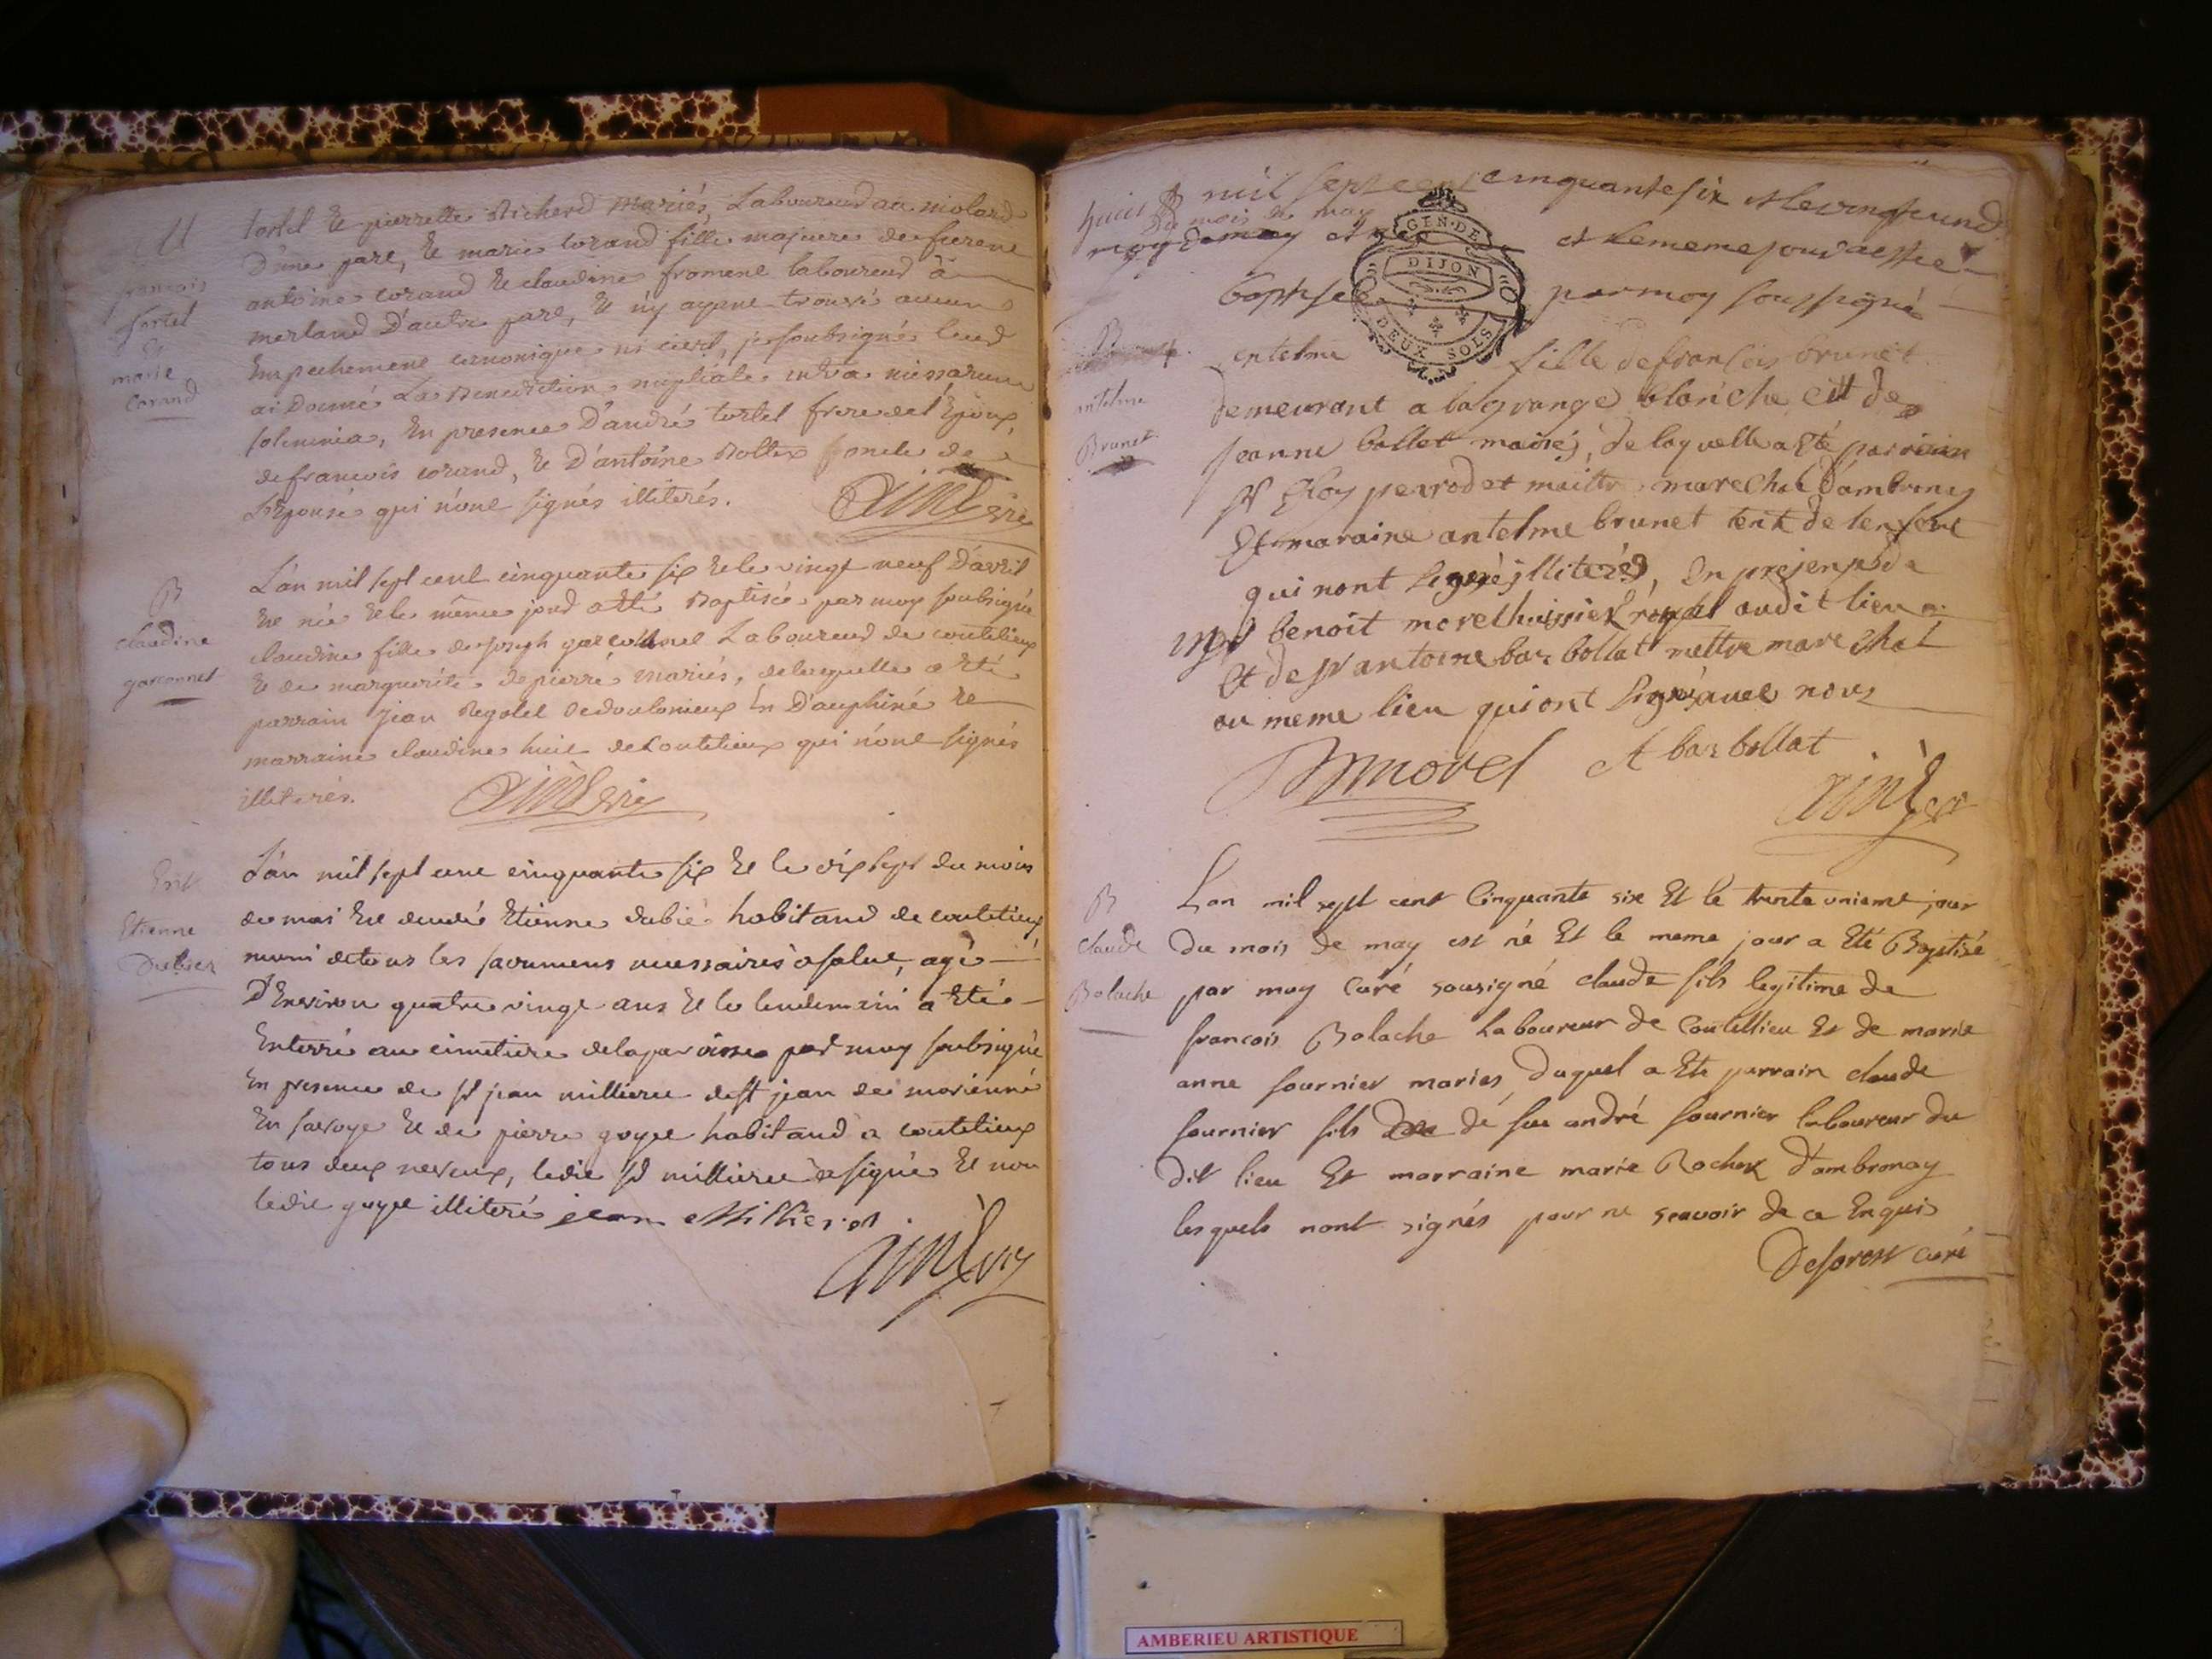 M
francois
tortel
Et
marie
Corand
tortel Et pierrette Richerd mariés, Laboureurd au molard
D'une part, Et marie corand fille majeure de feu
antoine corand Et claudine froment laboureurd à
merland D'autre part, Et n'y ayant trouvé aucun
Empechement canonique ni civil, je soubsigné leur
ai Donné La Benediction nuptiale intra missarum
solemnia, En presence D'andré tortel frere de l'Epoux,
de francois corand, Et D'antoine oncle de
L'Epouse qui n'ont signés illiterés.
B
claudine
garconnet
L'an mil sept cent cinquante six Et le vingt neuf D'avril
Est née Et le même jour a Eté Baptisée par moy soubsigné
claudine fille de joseph garconnet Laboureurd de coutelieux
Et de marguerite depierre mariés, de laquelle a Eté
parrain jean En Dauphiné Et
marraine claudine huit de Coutelieux qui n'ont signés
illiterés.
Etienne
Dubier
L'an mil sept cent cinquante six Et le dix sept du mois
de mai Est decedé Etienne dubié habitand de coutelieux
muni de tous les sacremens necessaires à salut, agé
D'Environ quatre vingt ans Et le lendemain a Eté
Enterré au cimetiere de la paroisse par moy soubsigné
En presence de sr jean millieret de st jean de morienne
En savoye Et de pierre goyet habitand a coutelieux
tous deux neveux, ledit sr millieret a signé Et non
ledit goyet illiteré jean Millieret
mil sept cent cinquante six et le vingt und
du mois de may
et le meme jour a esté
GEN. DE
DIJON
DEUX SOLS
baptisée par moy soussigné
B
antelme
Brunet
antelme fille de francois brunet
demeurant a la grange blanche Et de
jeanne ballet mariés, de laquelle a Eté parrain
sr Eloy perrodet maittre marechal d'ambronay
Et maraine antelme brunet tente de lenfent
qui nont signé illiterés, En presence de
benoit morel huissier royal audit lieu
Et de sr antoine barbollat mettre marechal
au meme lieu qui ont signé avec nous
Bmorel A barbollat
B
claude
Balache
Lan mil sept cent Cinquante six Et le trente unieme jour
du mois de may est né Et le meme jour a Eté Baptisé
par moy Curé sousigné claude fils legitime de
francois Balache Laboureur de Coutellieu Et de marie
anne fournier mariés duquel a Ete parrain claude
fournier fils de feu andré fournier laboureur du
dit lieu Et marraine marie Rochex d'ambronay
lesquels nont signés pour ne scavoir de ce Enquis
Deforest curé
AMBERIEU ARTISTIQUE